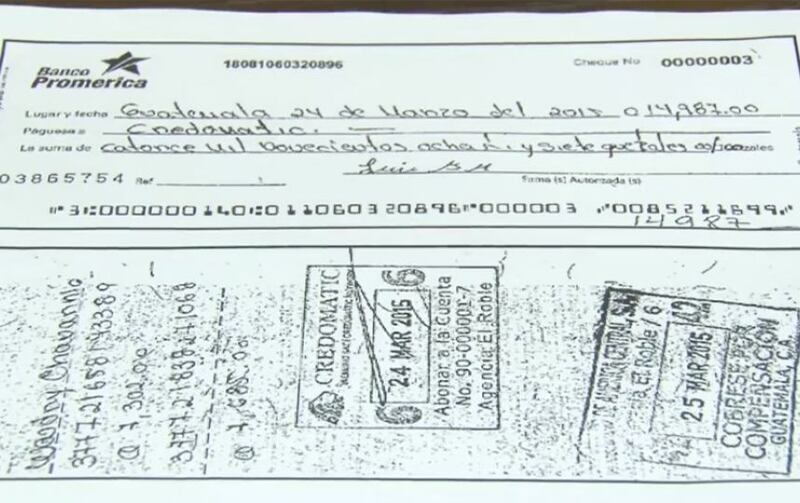 Banco Promerica
18081060320896 Cheque No 00000003
Lugar y fecha Guatemala 24 de Marzo del 2015 Q 14,987.00
Páguese a Credomatic.
La suma de catorce mil novecientos ochen. y siete quetzales 00/100
03865754 Ref. Firma (s) Autorizada (s)
"3I:000000140I:01106032089 6"000003 "0085211699"
14987
3777 21658143389
@ 7,302.00
3777 21838241068
@ 7,685.00
CREDOMATIC
6 24 MAR 2015 6
Abonar a la Cuenta
No. 90-000001-7
Agencia El Roble
DE AMERICA CENTRAL, S.A.
El Roble 6
25 MAR 2015 42
COBRESE POR
COMPENSACIÓN
GUATEMALA, C.A.